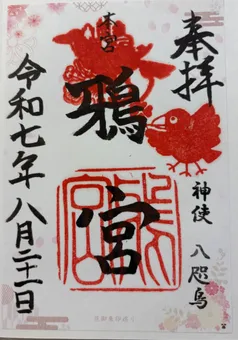 奉拝
神使 八咫烏
本宮
鴉宮
令和七年八月二十一日